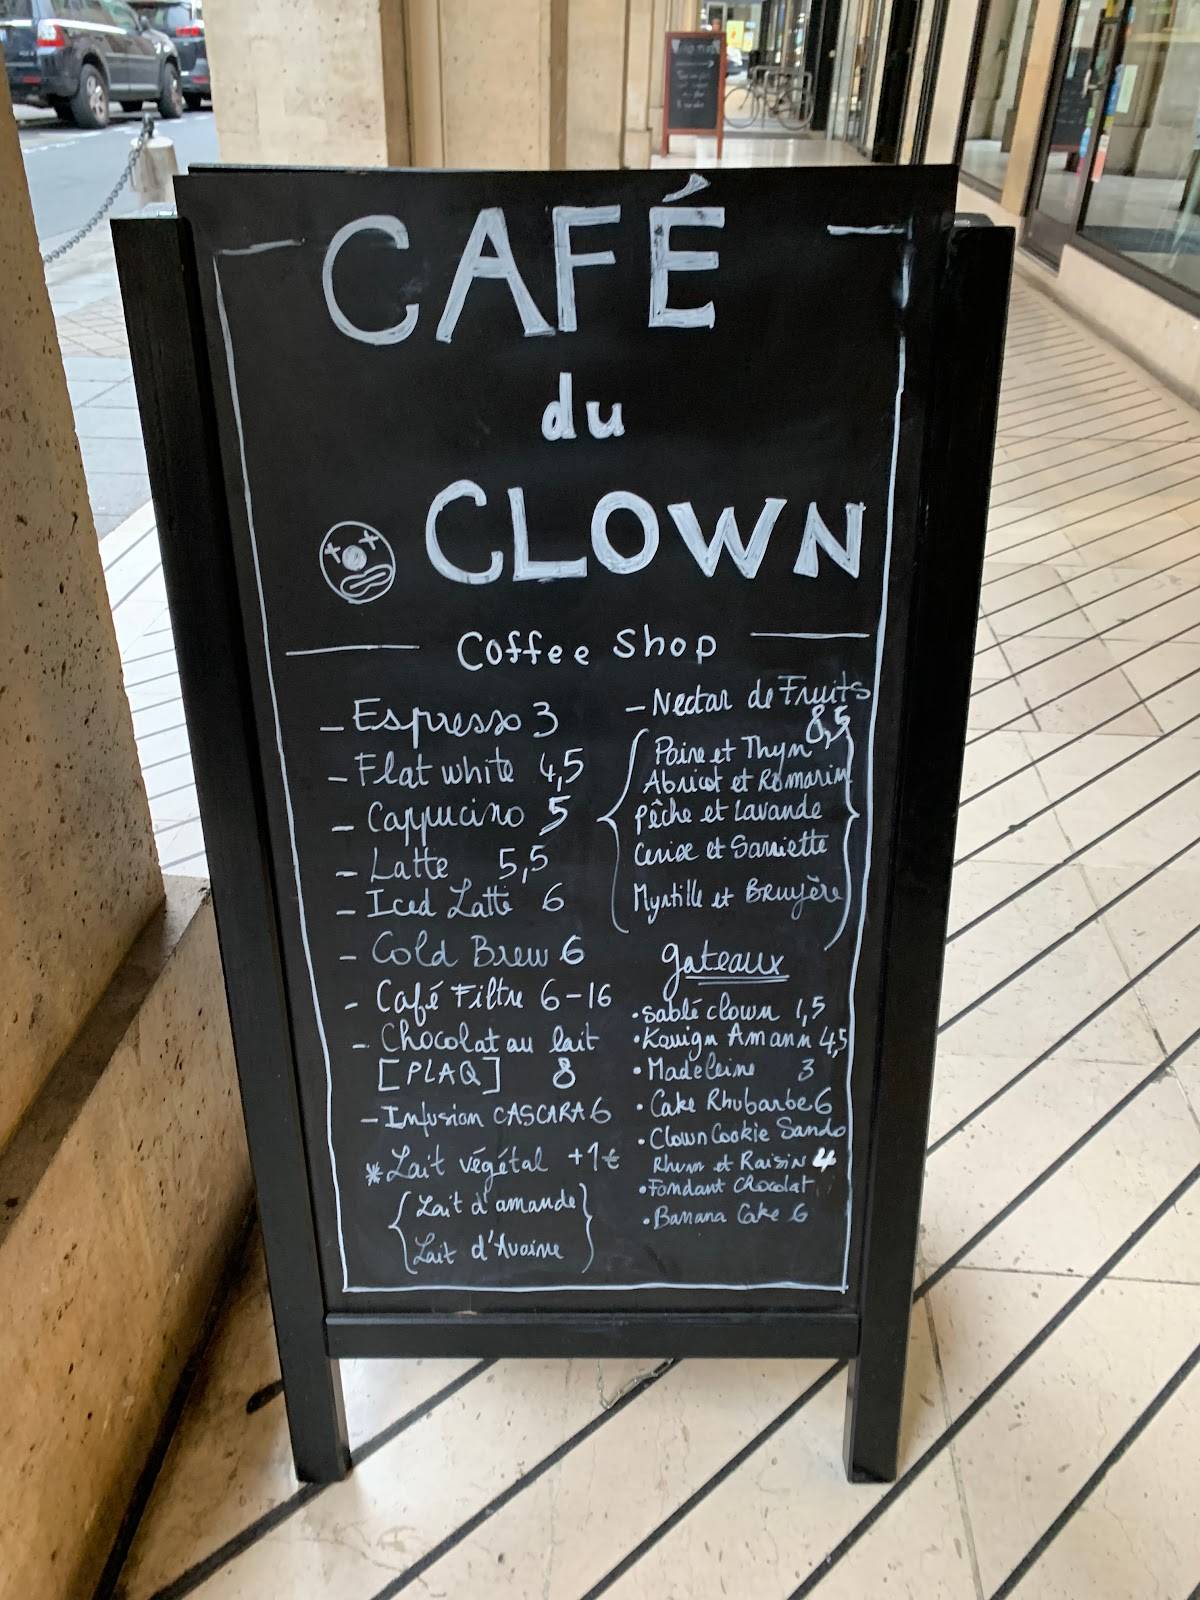 CAFÉ
du
CLOWN
Coffee Shop
- Espresso 3
- Flat white 4,5
- Cappucino 5
- Latte 5,5
- Iced Latte 6
- Cold Brew 6
- Café Filtre 6-16
- Chocolat au lait
[PLAQ] 8
- Infusion CASCARA 6
* Lait végétal +1€
{Lait d'amande}
{Lait d'Avoine}
- Nectar de Fruits
8,5
Poire et Thym
Abricot et Romarin
Pêche et Lavande
Cerise et Sarriette
Myrtille et Bruyère
gateaux
• sablé clown 1,5
• Kouign Amann 4,5
• Madeleine 3
• Cake Rhubarbe 6
• Clown Cookie Sando
Rhum et Raisin 4
• Fondant Chocolat
• Banana Cake 6